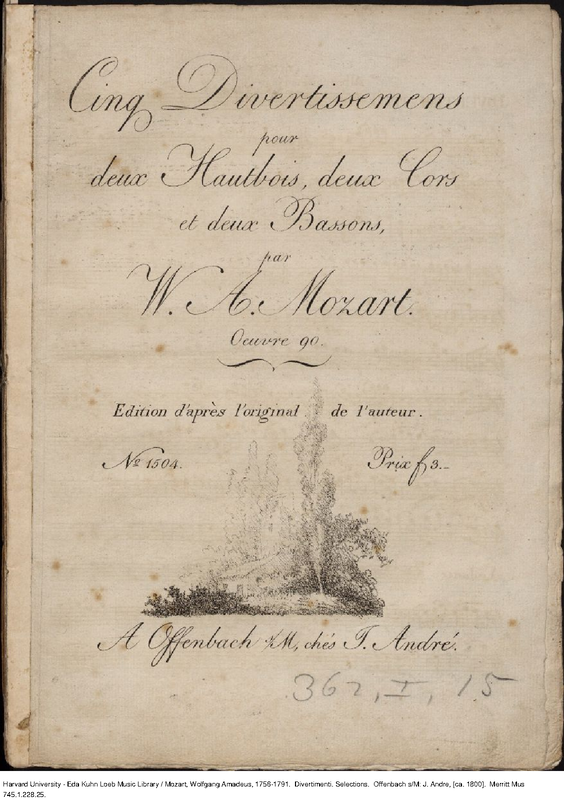 Cinq Divertissemens
pour
deux Hautbois, deux Cors
et deux Bassons,
par
W. A. Mozart.
Oeuvre 90.
Edition d'après l'original de l'auteur.
No 1504. Prix f 3.-
A Offenbach s/M, chés J. André.
362, I, 15
Harvard University - Eda Kuhn Loeb Music Library / Mozart, Wolfgang Amadeus, 1756-1791. Divertimenti. Selections. Offenbach s/M: J. Andre, [ca. 1800]. Merritt Mus
745.1.228.25.